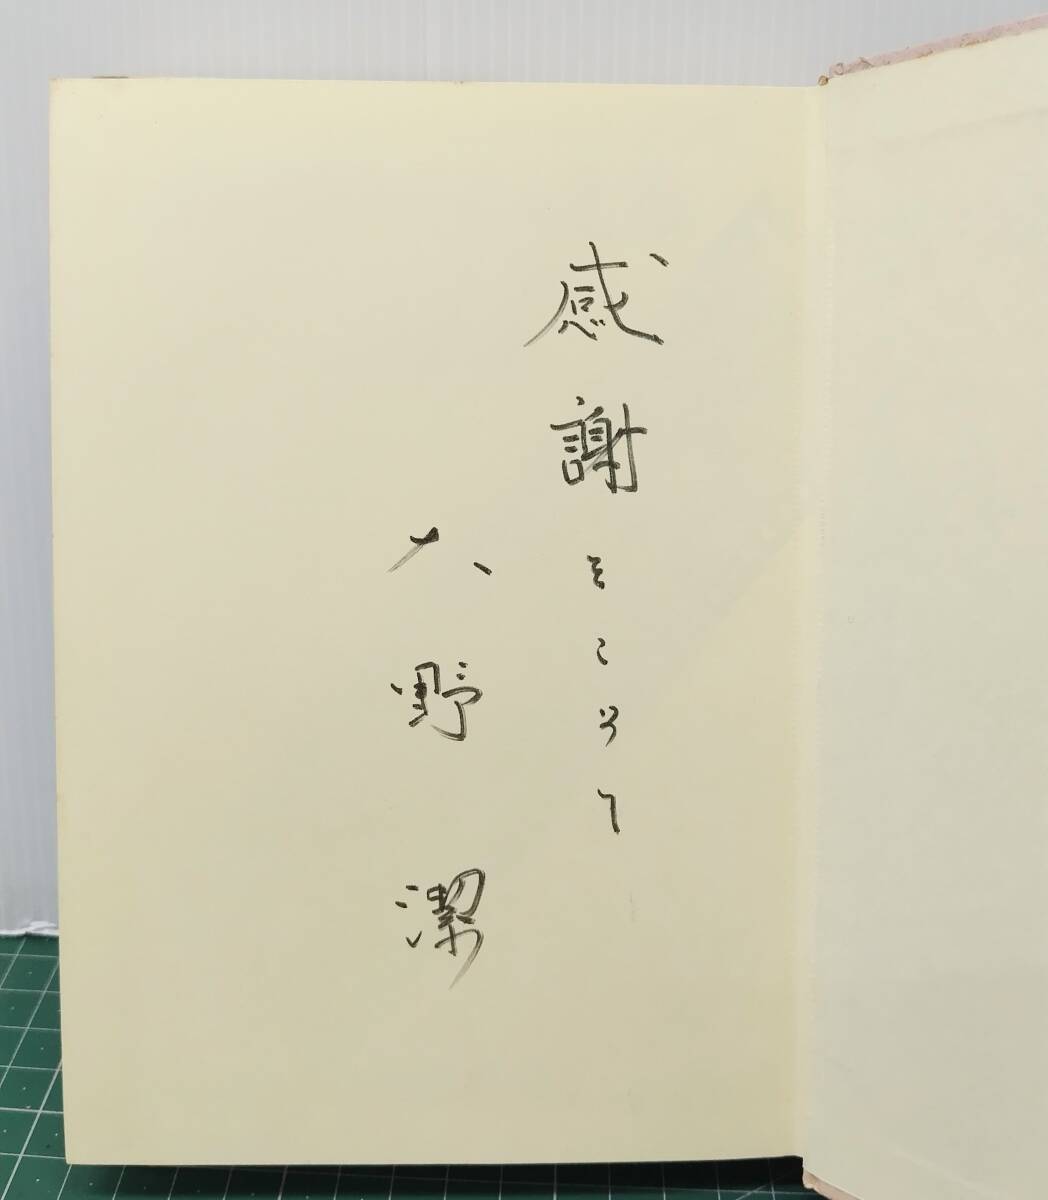 感謝をこめて
大野潔